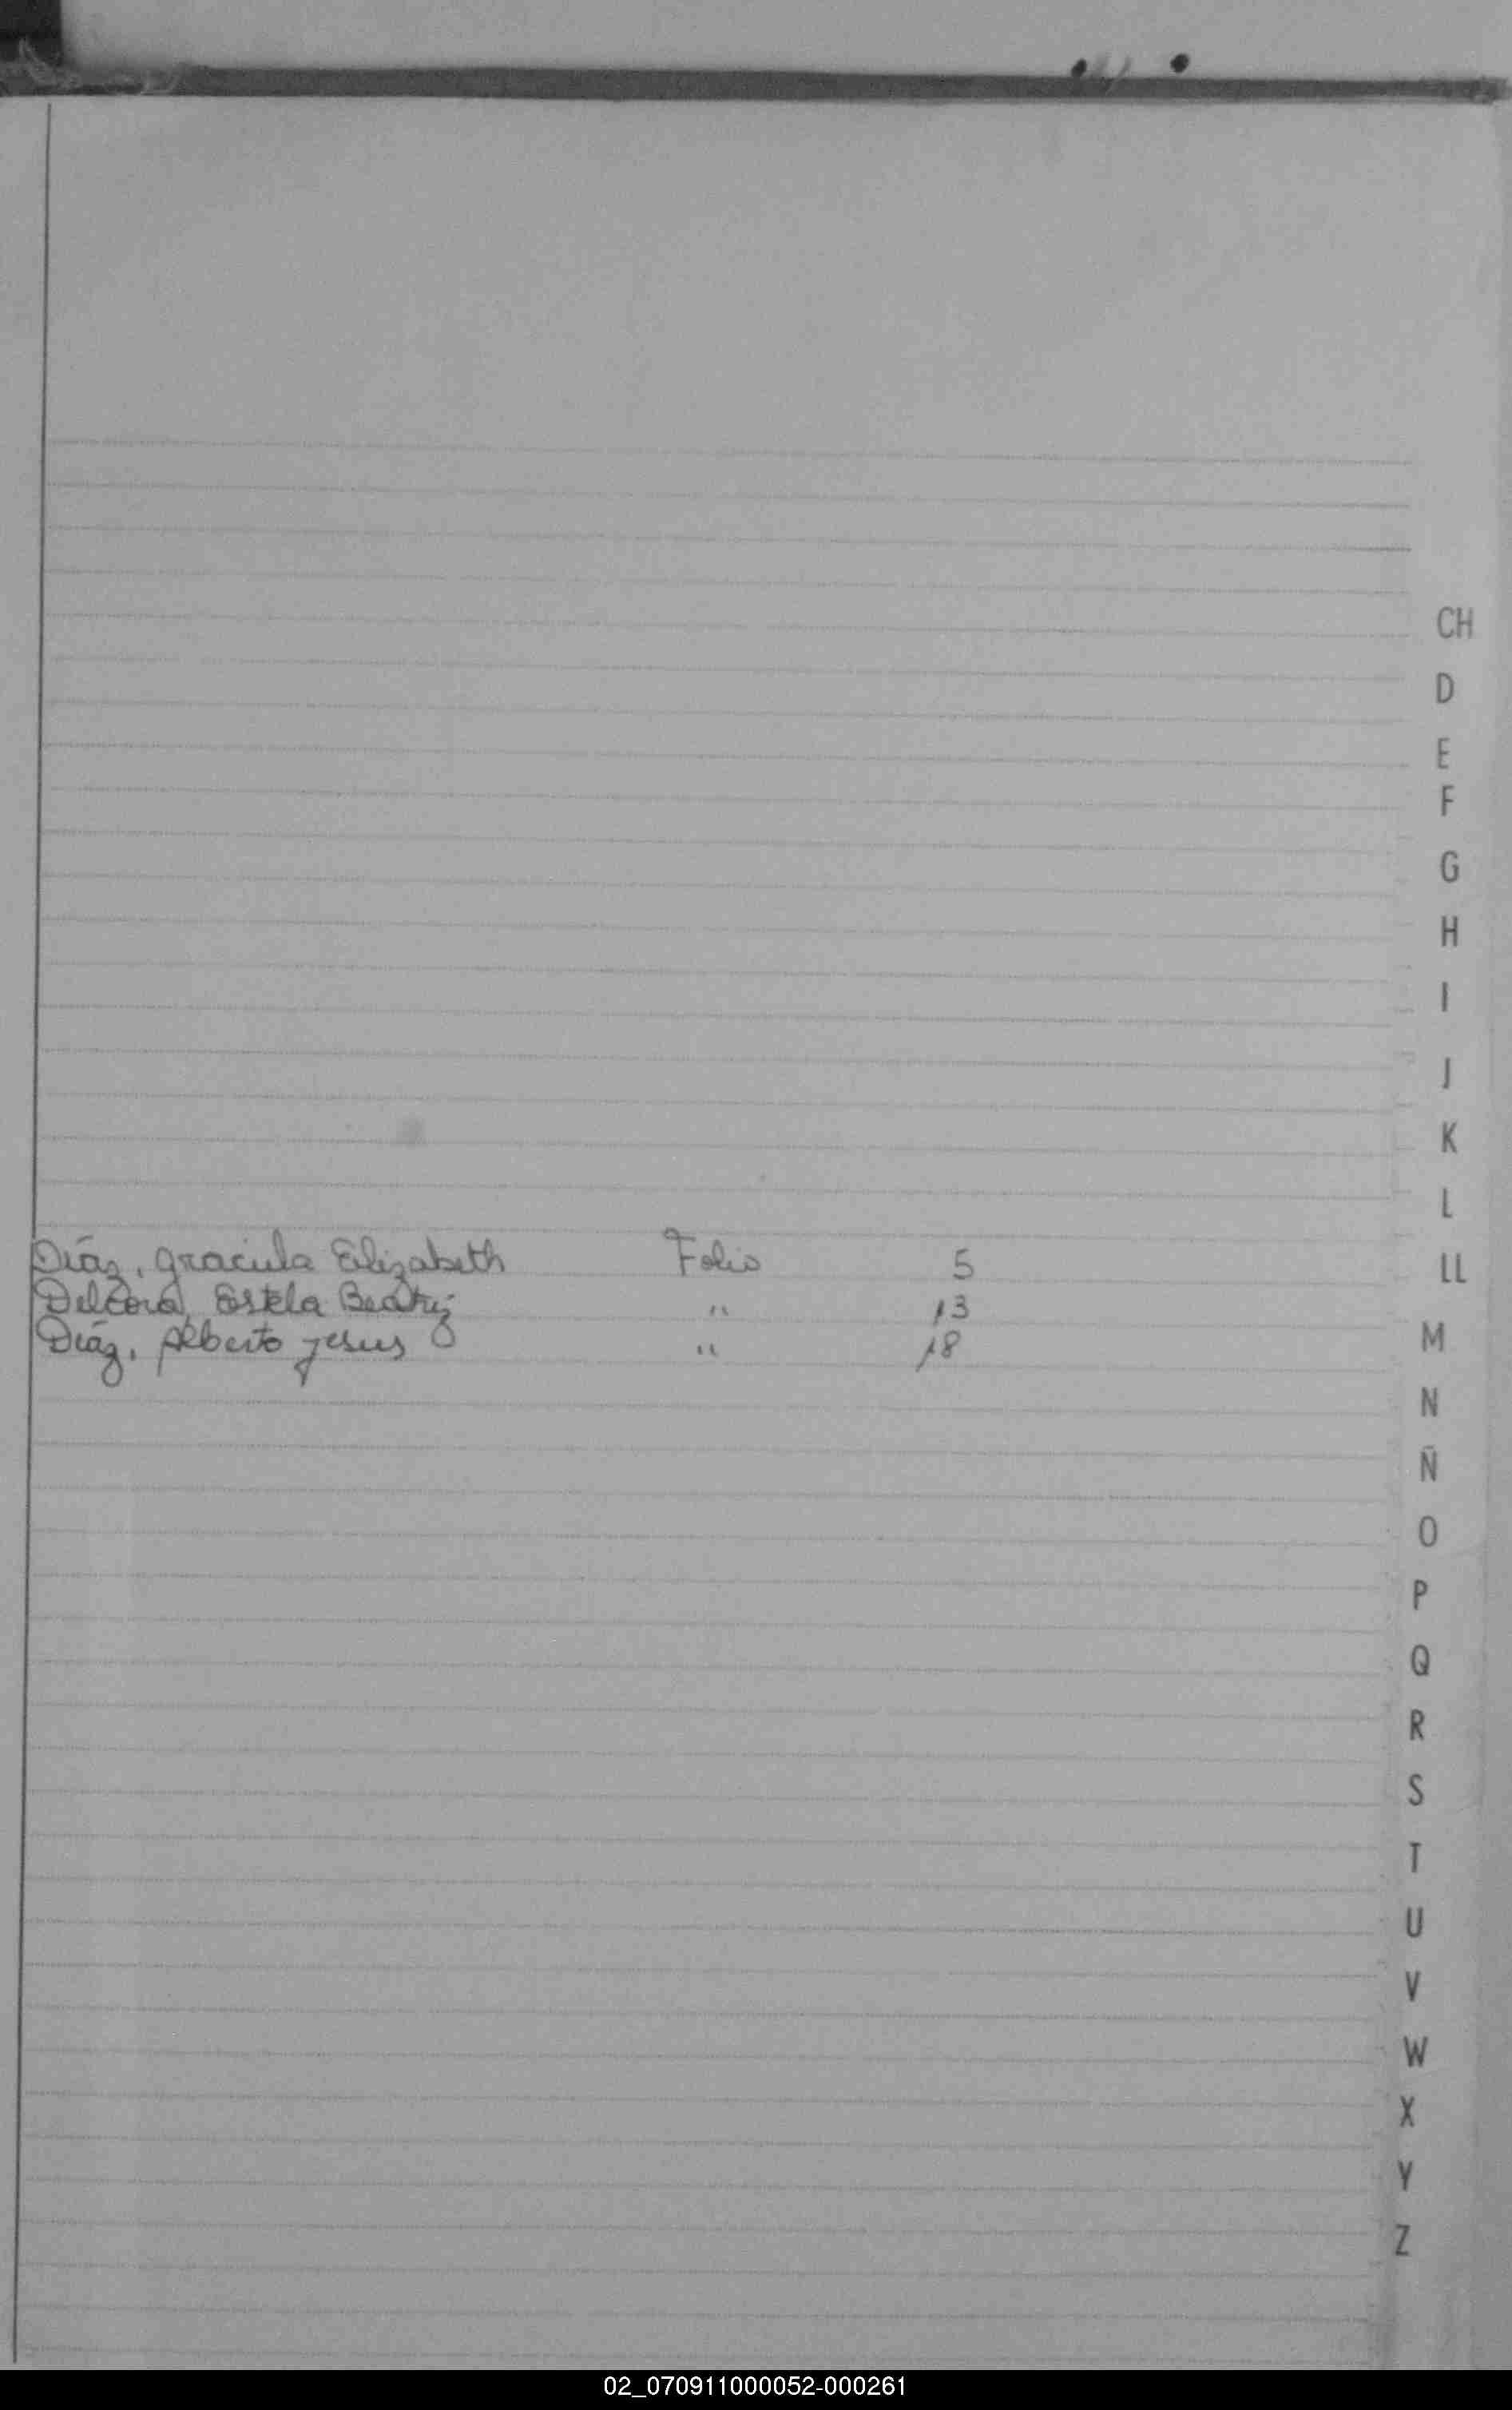 CH
D
E
F
G
H
I
J
K
L
Díaz, Graciela Elizabeth Folio 5
LL
Estela Beatriz " 13
M
Díaz, Alberto Jesus " 18
N
Ñ
O
P
Q
R
S
T
U
V
W
X
Y
Z
02_070911000052-000261